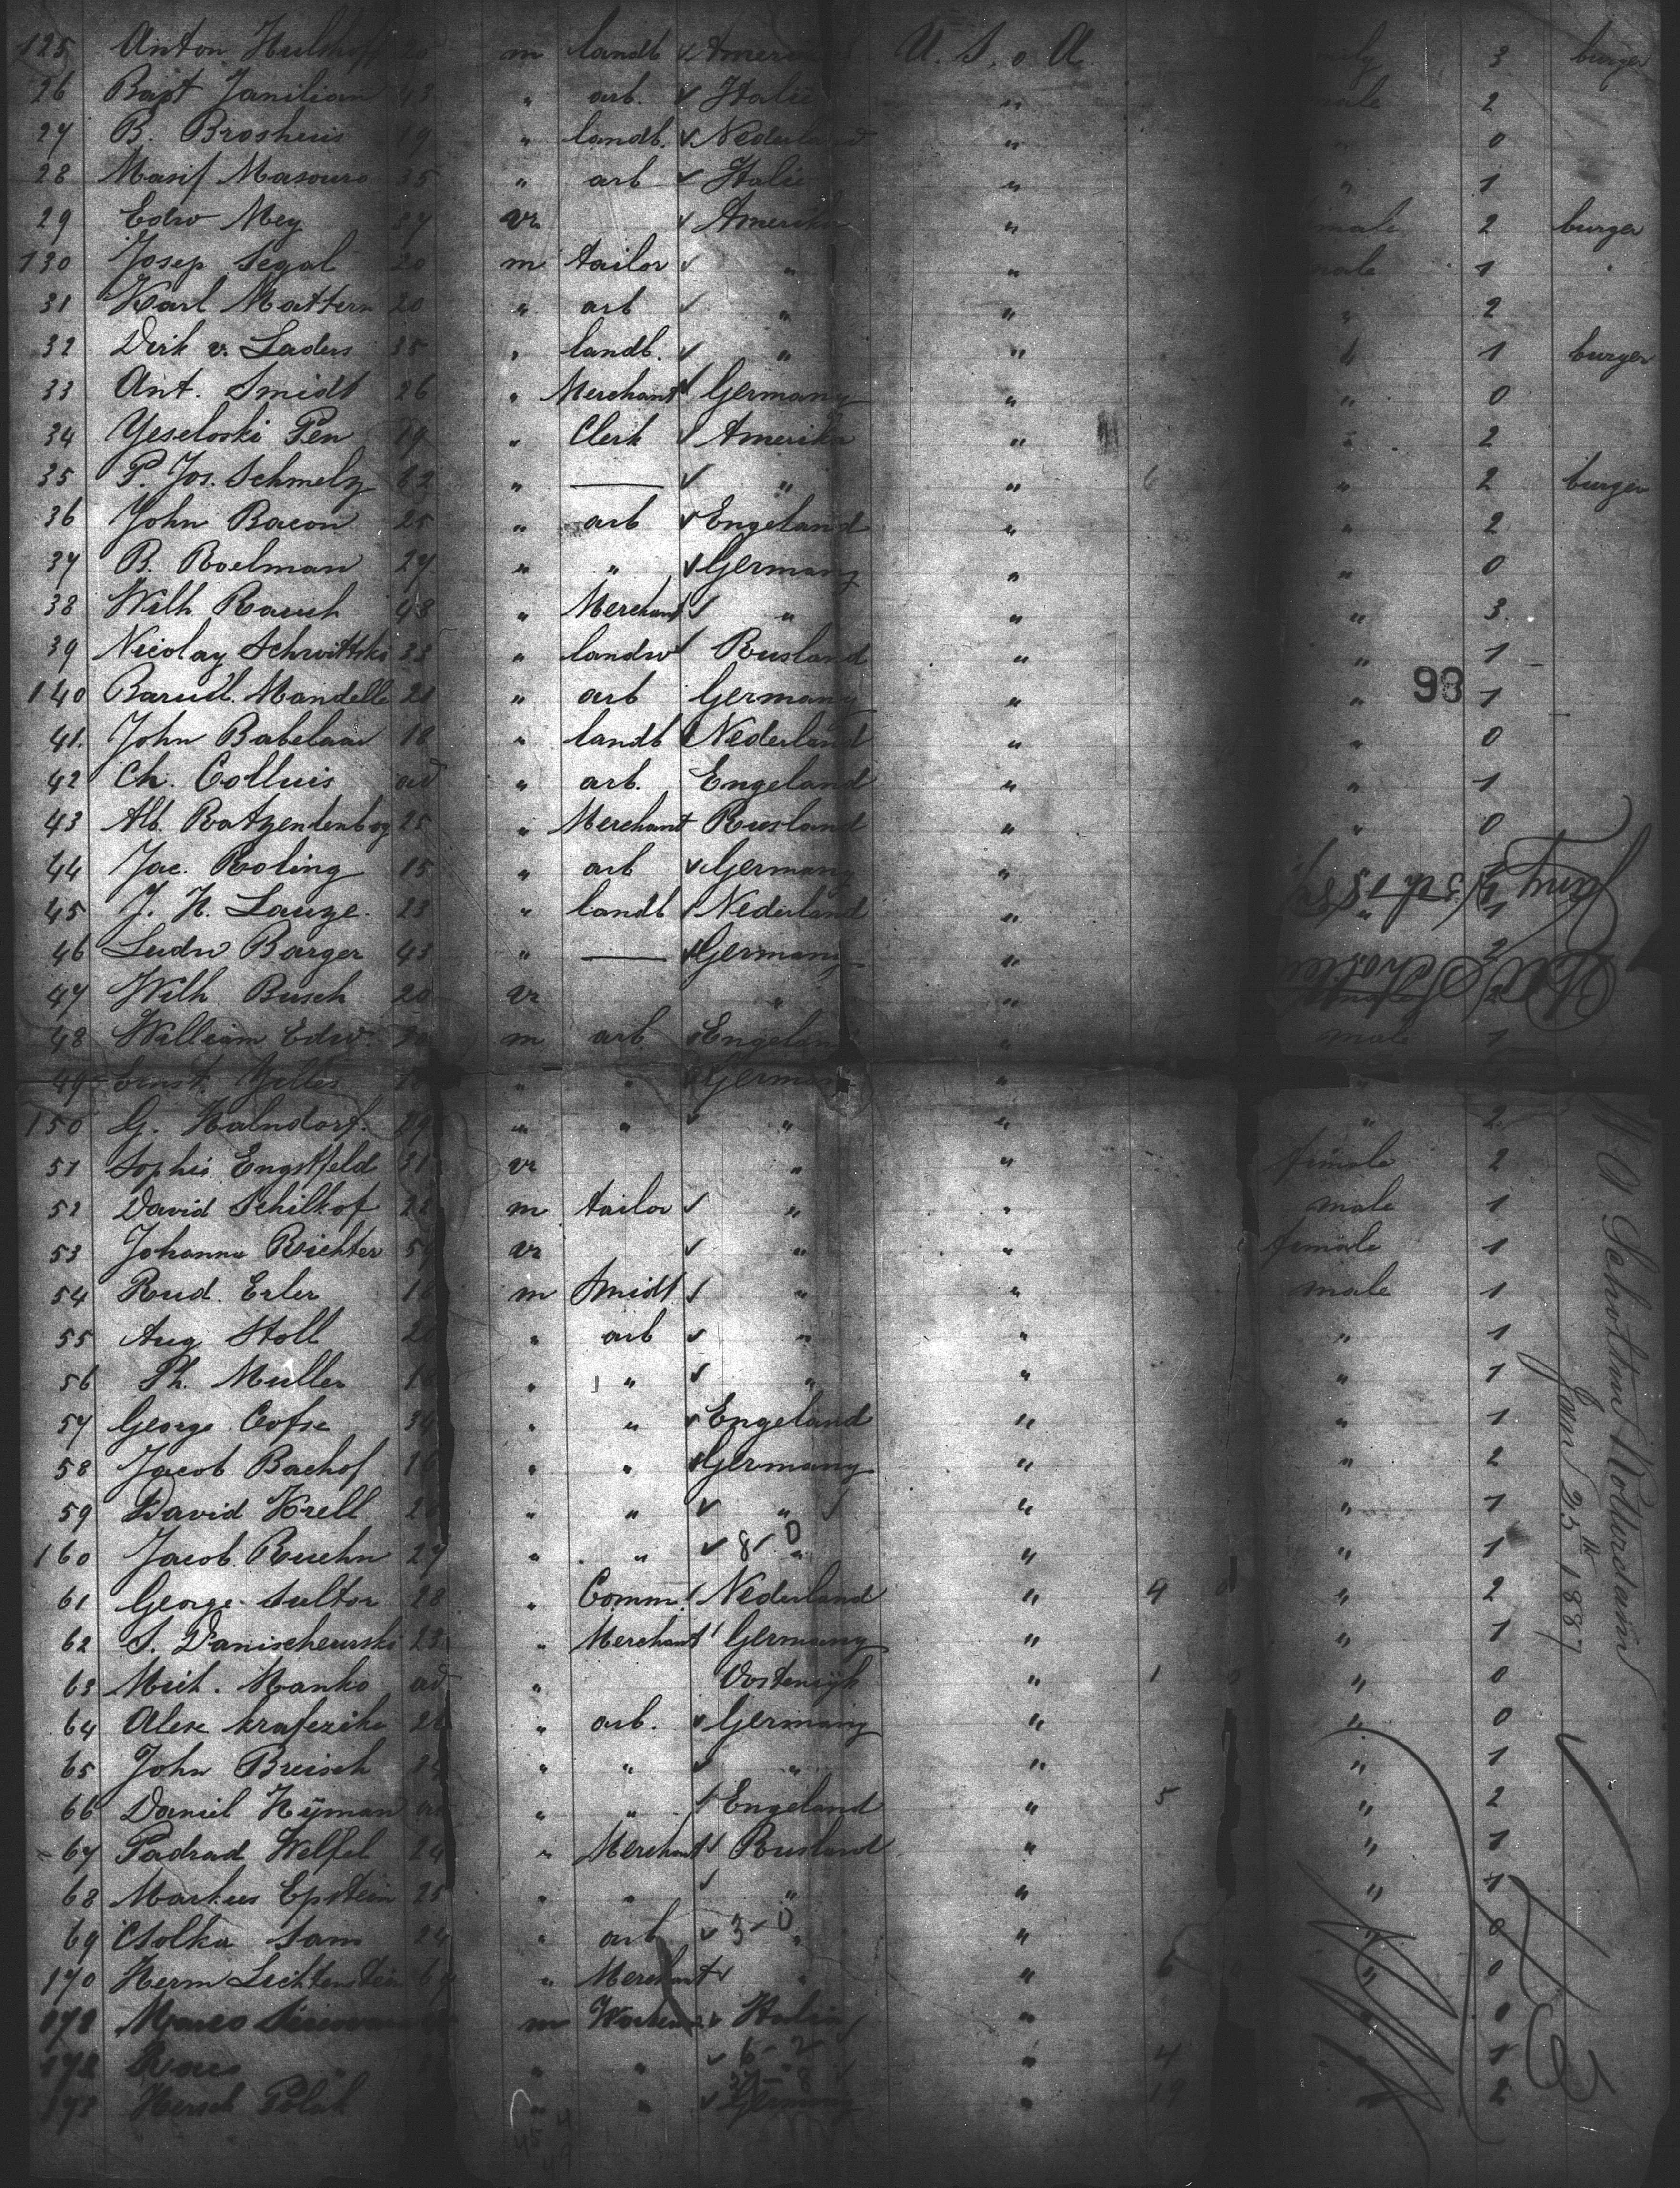 125 Anton Hulshoff 20 m landb Amer U. S. o A. 3 burger
26 Bapt Janilian 43 " arb. Italie " male 2
27 B. Broshuis 19 " landb. Nederland " " 0
28 Masif Masouro 35 " arb Italie " " 1
29 Edw Mey 37 vr Amerika " male 2 burger
130 Josep Segal 20 m tailor " " male 1
31 Karl Mattern 20 " arb " " " 2
32 Dirk v. Laders 35 " landb. " " " 1 burger
33 Ant. Smidt 26 " Merchant Germany " " 0
34 Yeseloski Pen 19 " Clerk Amerika " " 2
35 P. Jos. Schmelz 62 " — " " 6 " 2 burger
36 John Bacon 25 " arb Engeland " " 2
37 B. Roelman 27 " " Germany " " 0
38 Wilh Rauch 48 " Merchant " " " 3
39 Nicolay Schwittski 33 " landw Rusland " " 1
98
140 Barud. Mandelle 21 " arb Germany " " 1
41. John Babelaar 18 " landb Nederland " " 0
42 Ch. Colluis ad " arb. Engeland " " 1
43 Alb. Ratzendenbog 25 " Merchant Rusland " " 0
44 Jac. Roling 15 " arb Germany "
45 J. H. Lauze. 23 " landb Nederland " " 1
46 Ludw Barger 43 " — Germany " 2
47 Wilh Busch 20 vr " "
48 William Edw. m arb. Engeland " male 1
49 Ernst. Gilles " " German " "
150 G. Halndorf. 29 " " " " " 2
51 Sophie Engstfeld 31 vr " " female 2
52 David Schilkof 22 m tailor " " male 1
53 Johanna Richter 59 vr " " female 1
54 Rud. Erler 16 m Smidt " " male 1
55 Aug Stoll 20 " arb " " " 1
56 Ph. Muller " " " " " 1
57 George Cofse 34 " " Engeland " " 1
58 Jacob Bachof 16 " " Germany " " 2
59 David Krell 2 " " " " " 1
8 - 0
160 Jacob. Ruehn 27 " " " " " 1
61 George Sultor 28 " Comm. Nederland " 4 " 2
62 S. Danischewski 23 " Merchant Germany " " 1
63 Mich. Manko ad " Oostenrijk " 1 0 " 0
64 Alex Kraferike 26 " arb. Germany " " 0
65 John Breisch " " " " " 1
66 Daniel Hijman " " Engeland " 5 " 2
67 Padrad Welfel 24 " Merchant Rusland " " 1
68 Markus Epstein 25 " " " " " 1
3 - 0
69 Csolka Sam 24 " arb " " " 0
170 Herm Lichtenstein 6 " Merchant " " 6 " 0
171 Marco m Italie " " 0
6 - 2
172 " " " " 4 " 1
37 - 8
173 Hersch Polak " " Germany " 19 " 2
W A Scholten Rotterdam
Jan 25th 1887
173